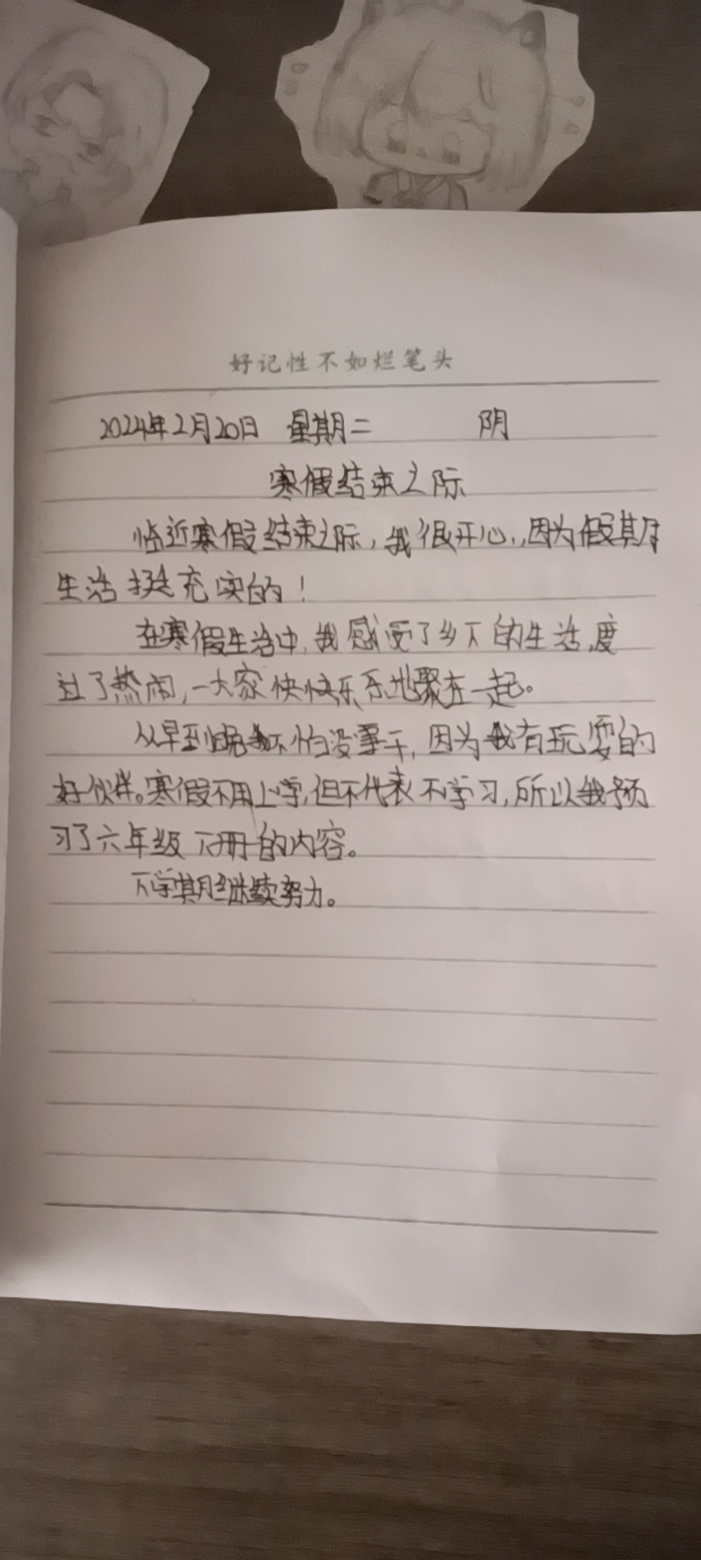 好记性不如烂笔头
2024年2月20日 星期二 阴
寒假结束之际
临近寒假结束之际,我很开心,因为假期
生活挺充实的!
在寒假生活中,我感受了乡下的生活,度
过了热闹,一大家快快乐乐地聚在一起。
从早到晚都不怕没事干,因为我有玩耍的
好伙伴。寒假不用上学,但不代表不学习,所以我预
习了六年级下册的内容。
下学期继续努力。